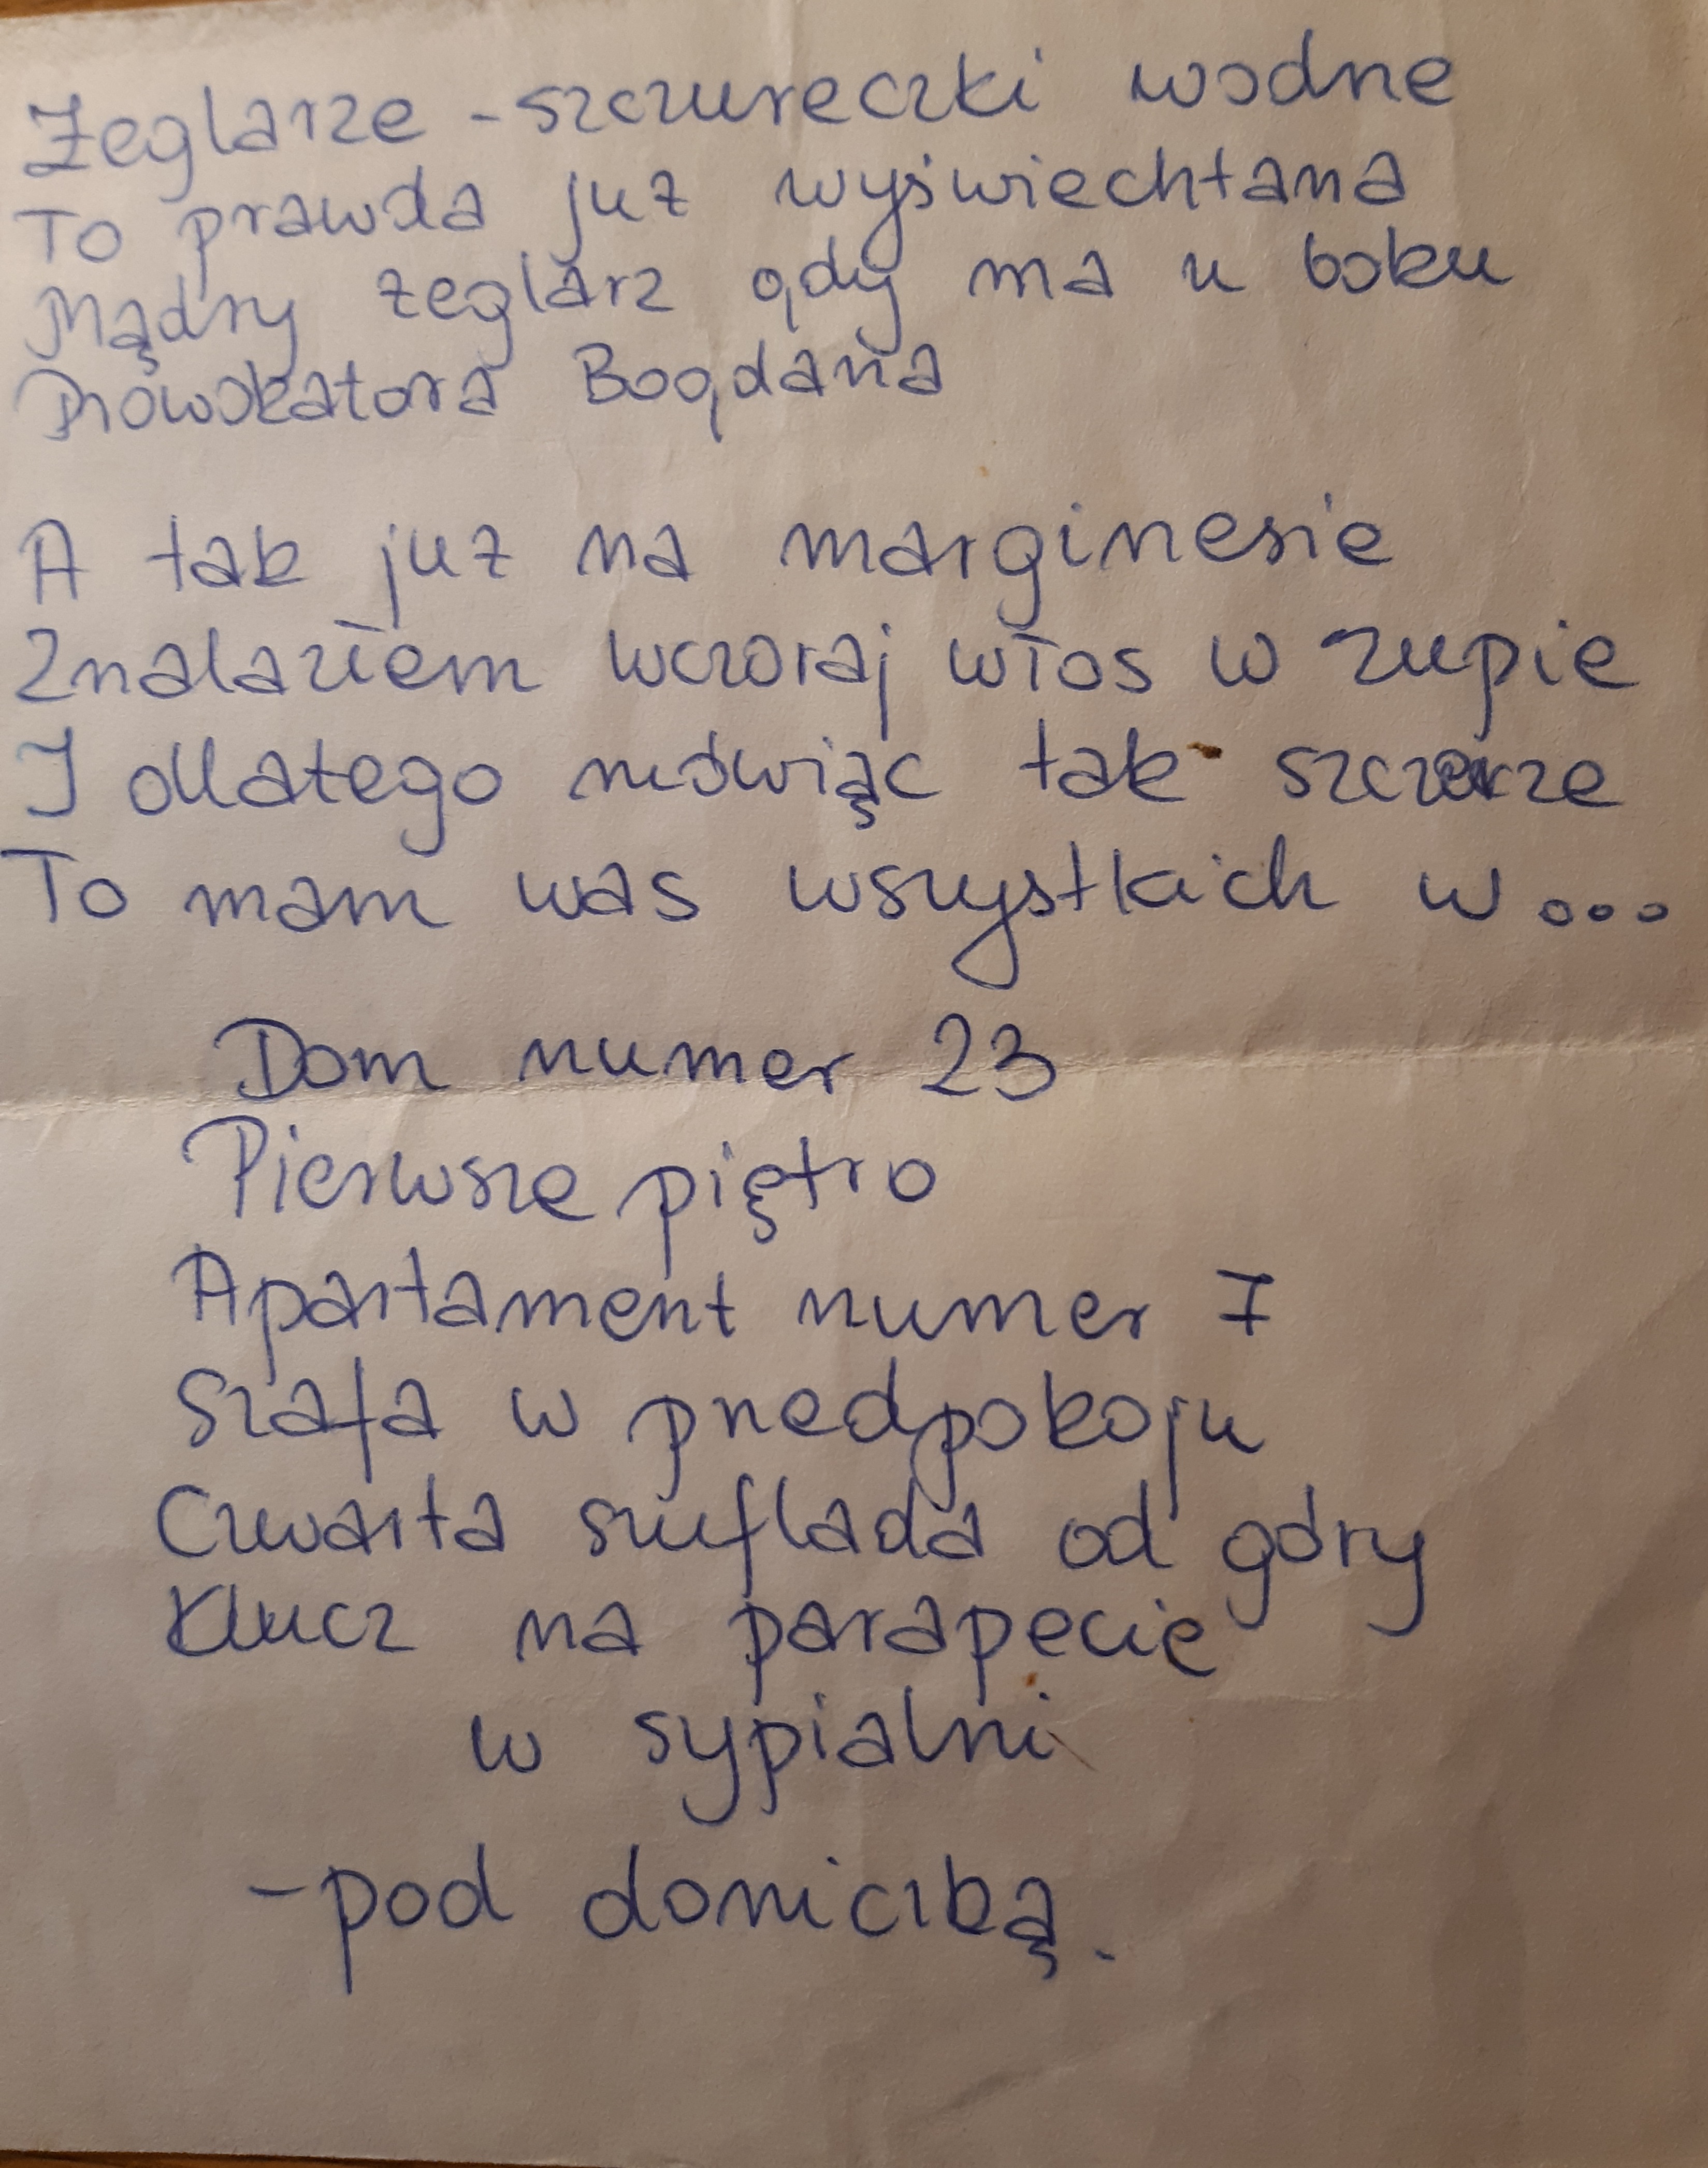 Żeglarze - szczureczki wodne
To prawda już wyświechtana
Mądry żeglarz gdy ma u boku
Prowokatora Bogdana
A tak już na marginesie
Znalazłem wczoraj włos w zupie
I dlatego mówiąc tak szczerze
To mam was wszystkich w...
Dom numer 23
Pierwsze piętro
Apartament numer 7
Szafa w przedpokoju
Czwarta szuflada od góry
Klucz na parapecie
w sypialni
- pod doniczką.